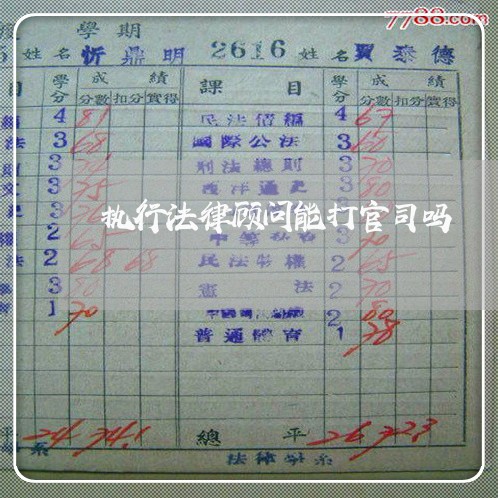 7788.com
學期
5 姓名 忻鼎明 2616 姓名 賈泰德
目 學分 成績 課目 學分 成績
分數 扣分 實得 分數 扣分 實得
4 81 民法債編 4 67
法 3 68 國際公法 3 60
則 3 刑法總則 3 70
3 75 西洋通史 3 80
执行法律顾问能打官司吗
2 3 70
法 2 68 68 民法物權 2 65
3 80 憲法 2 70
1 70 2 80
普通體育 1 78
平 24 74.1 總平 26 72.3
系 法律學系